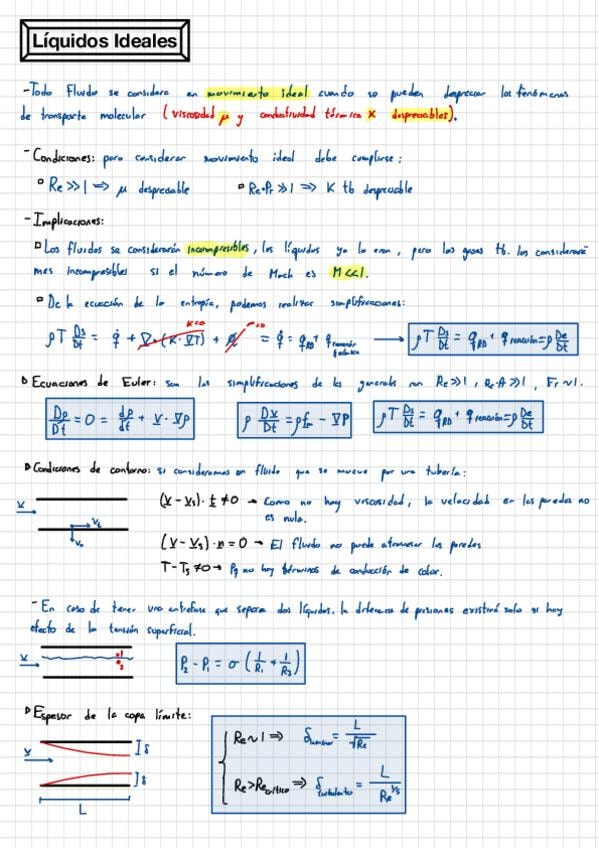 Líquidos Ideales
-Todo Fluido se considera en movimiento ideal cuando se pueden despreciar los fenómenos
de transporte molecular (viscosidad μ y conductividad térmica K despreciables).
-Condiciones: para considerar movimiento ideal debe cumplirse:
▫ Re >> 1 ⟹ μ despreciable ▫ Re·Pr >> 1 ⟹ K tb despreciable
-Implicaciones:
▫ Los fluidos se considerarán incompresibles, los líquidos ya lo eran, pero los gases tb. los considerare-
mos incompresibles si el número de Mach es M<<1.
▫ De la ecuación de la entropía, podemos realizar simplificaciones:
K=0 =0
ρT Ds/Dt = q̇ + ∇·(K·∇T) + = q̇ = q_RD + q_reacción química → ρT Ds/Dt = q_RD + q_reacción = ρ De/Dt
▹ Ecuaciones de Euler: son las simplificaciones de las generales con Re>>1, Re·Pr>>1, Fr~1.
Dρ/Dt = 0 = dρ/dt + v·∇ρ ρ Dv/Dt = ρf_m - ∇P ρT Ds/Dt = q_RD + q_reacción = ρ De/Dt
▹ Condiciones de contorno: si consideramos un fluido que se mueve por una tubería:
(v - v_s)·t ≠ 0 → Como no hay viscosidad, la velocidad en las paredes no
v
es nula.
v_t
v_n
(v - v_s)·n = 0 → El fluido no puede atravesar las paredes
T - T_s ≠ 0 → Pq no hay términos de conducción de calor.
- En caso de tener una entrefase que separa dos líquidos, la diferencia de presiones existirá solo si hay
efecto de la tensión superficial.
v ·1 ·2 P₂ - P₁ = σ (1/R₁ + 1/R₂)
▹ Espesor de la capa límite:
v δ δ L
Re ~ 1 ⟹ δ_laminar = L/√Re
Re > Re_crítico ⟹ δ_turbulento = L/Re^1/5